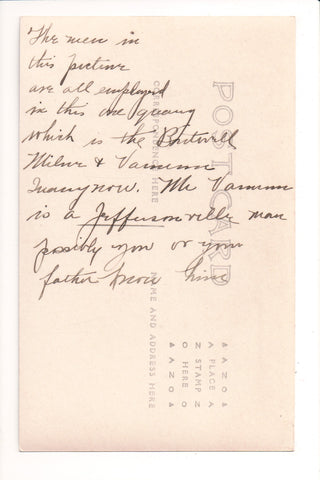 The men in
this picture
are all employed
in this one quarry
which is the Boutwell
Milne & Varnum
Quarry now. Mr Varnum
is a Jeffersonville man
possibly you or your
father know him
POST CARD
CORRESPONDENCE HERE
NAME AND ADDRESS HERE
AZO
PLACE
STAMP
HERE
AZO